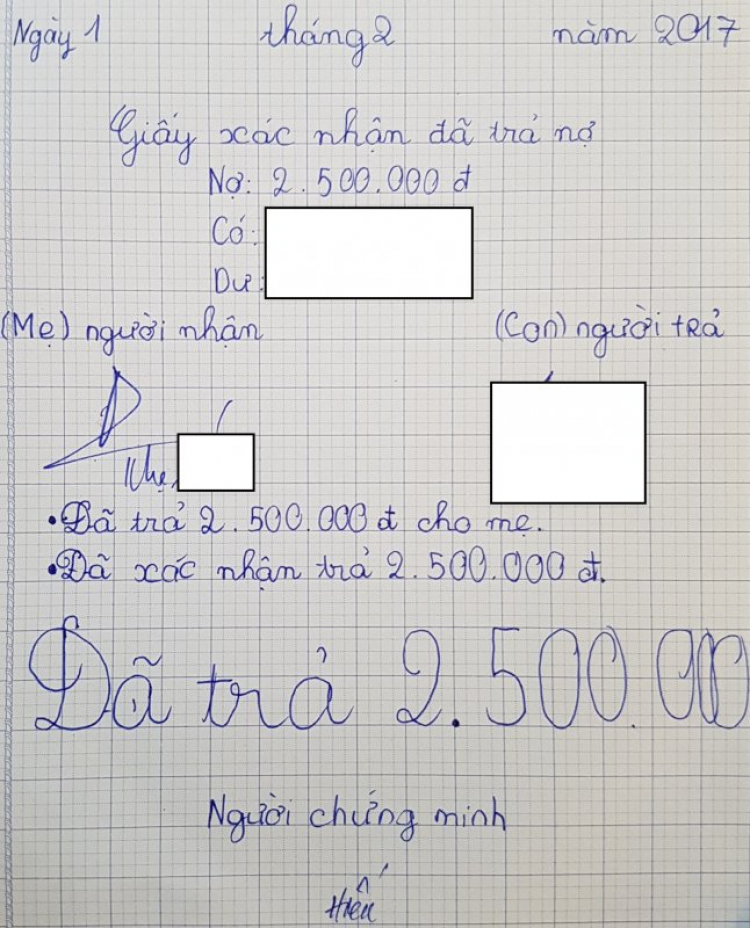 Ngày 1 tháng 2 năm 2017
Giấy xác nhận đã trả nợ
Nợ: 2.500.000 đ
Có:
Dư:
(Mẹ) người nhận (Con) người trả
•Đã trả 2.500.000 đ cho mẹ.
•Đã xác nhận trả 2.500.000 đ.
Đã trả 2.500.000
Người chứng minh
Hiếu